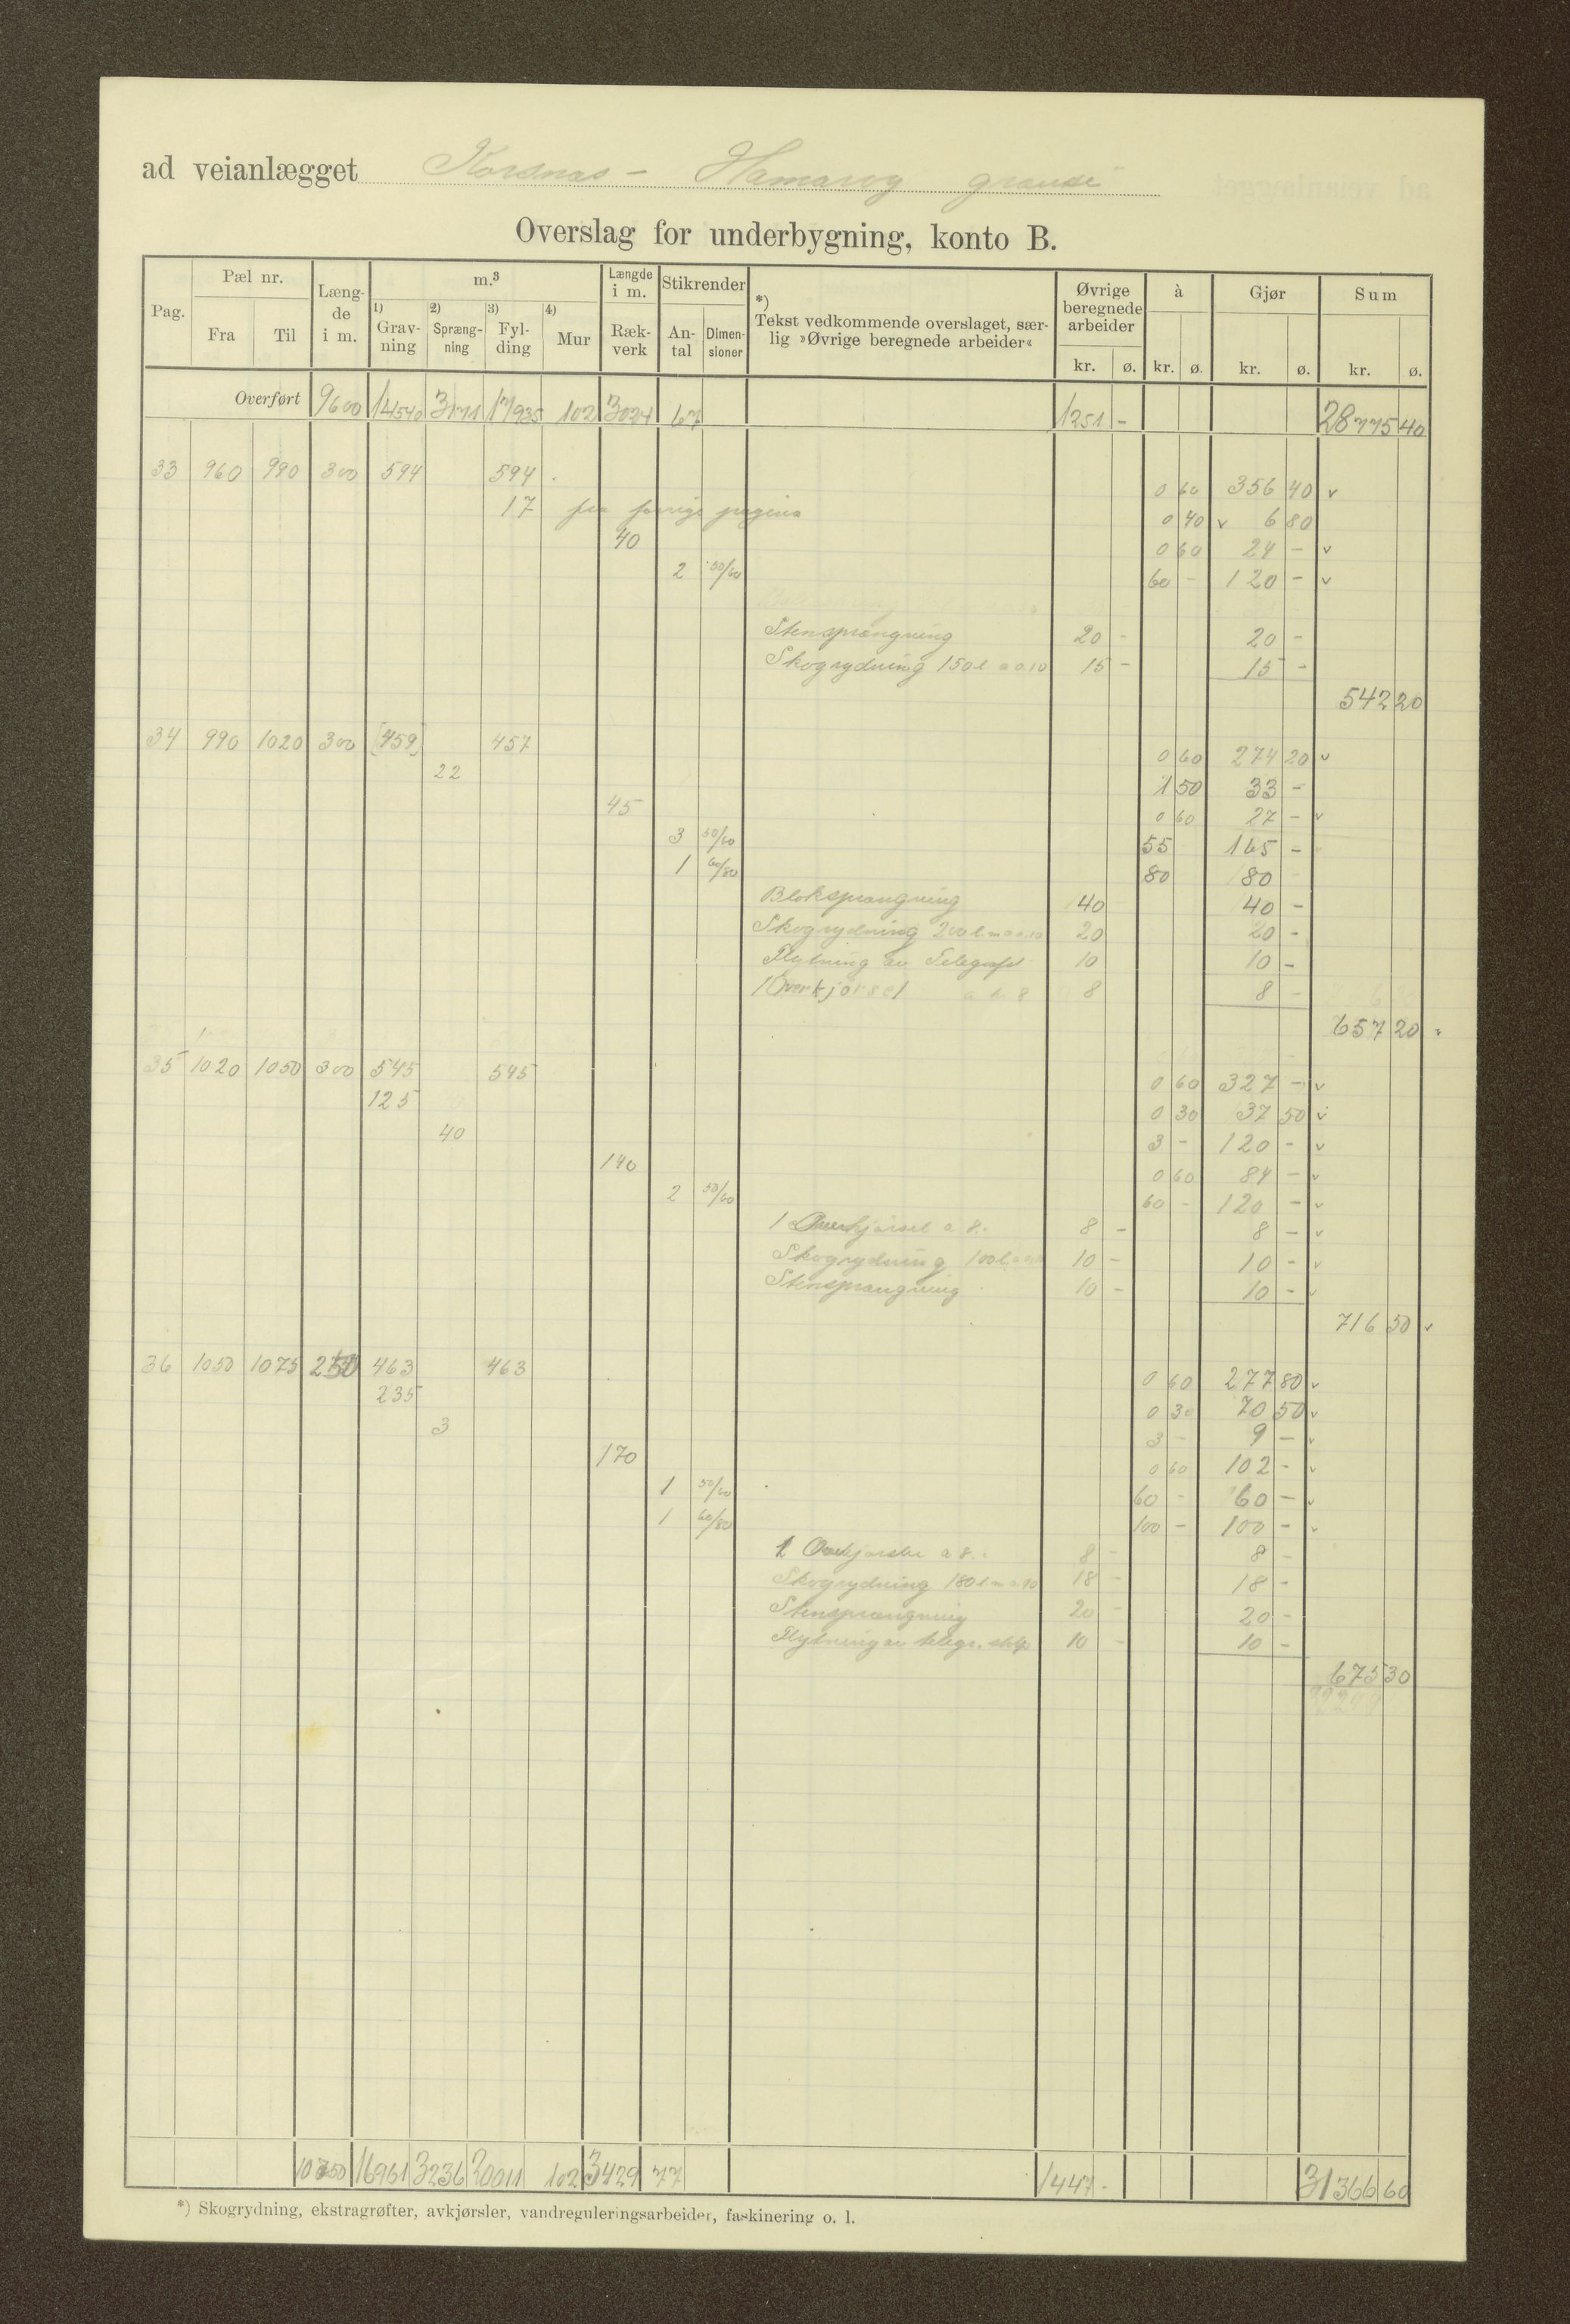 ad veianlægget Korsnæs - Hamarøy grænse
Overslag for underbygning, konto B.
Pag. | Pæl nr. Fra Til | Længde i m. | m.³ 1) Gravning 2) Sprængning 3) Fylding 4) Mur | Længde i m. Rækverk | Stikrender Antal Dimensioner | *) Tekst vedkommende overslaget, særlig »Øvrige beregnede arbeider« | Øvrige beregnede arbeider kr. ø. | à kr. ø. | Gjør kr. ø. | Sum kr. ø.
Overført 9600 14540 3171 17935 102 3034 67 1251 - 28775 40
33 960 990 300 594 594 0 60 356 40 v
17 fra forrige pagina 0 40 v 6 80
40 0 60 24 - v
2 50/60 60 - 120 - v
Stensprængning 20 - 20 -
Skogrydning 150 l a 0.10 15 - 15 -
542 20
34 990 1020 300 [459] 457 0 60 274 20 v
22 1 50 33 -
45 0 60 27 - v
3 50/60 55 165 -
1 60/80 80 80
Bloksprængning 40 40 -
Skogrydning 200 l.m a 0.10 20 20 -
Flytning av Telegraf 10 10 -
1 Overkjörsel a kr 8 8 8 -
657 20 v
35 1020 1050 300 545 545 0 60 327 - v
125 0 30 37 50 v
40 3 - 120 - v
140 0 60 84 - v
2 50/60 60 - 120 - v
1 Overkjørsel a 8. 8 - 8 - v
Skogrydning 100 l. 10 - 10 - v
Stensprængning 10 - 10 - v
716 50 v
36 1050 1075 250 463 463 0 60 277 80 v
235 0 30 70 50 v
3 3 - 9 - v
170 0 60 102 - v
1 50/60 60 - 60 - v
1 60/80 100 - 100 - v
1 Overkjørsler a 8. 8 - 8 -
Skogrydning 180 l m a 10 18 - 18 -
Stensprængning 20 - 20 -
Flytning av telegr. stolp 10 - 10 -
675 30
10750 16961 3236 20011 102 3429 77 1447 - 31366 60
*) Skogrydning, ekstragrøfter, avkjørsler, vandreguleringsarbeider, faskinering o. l.